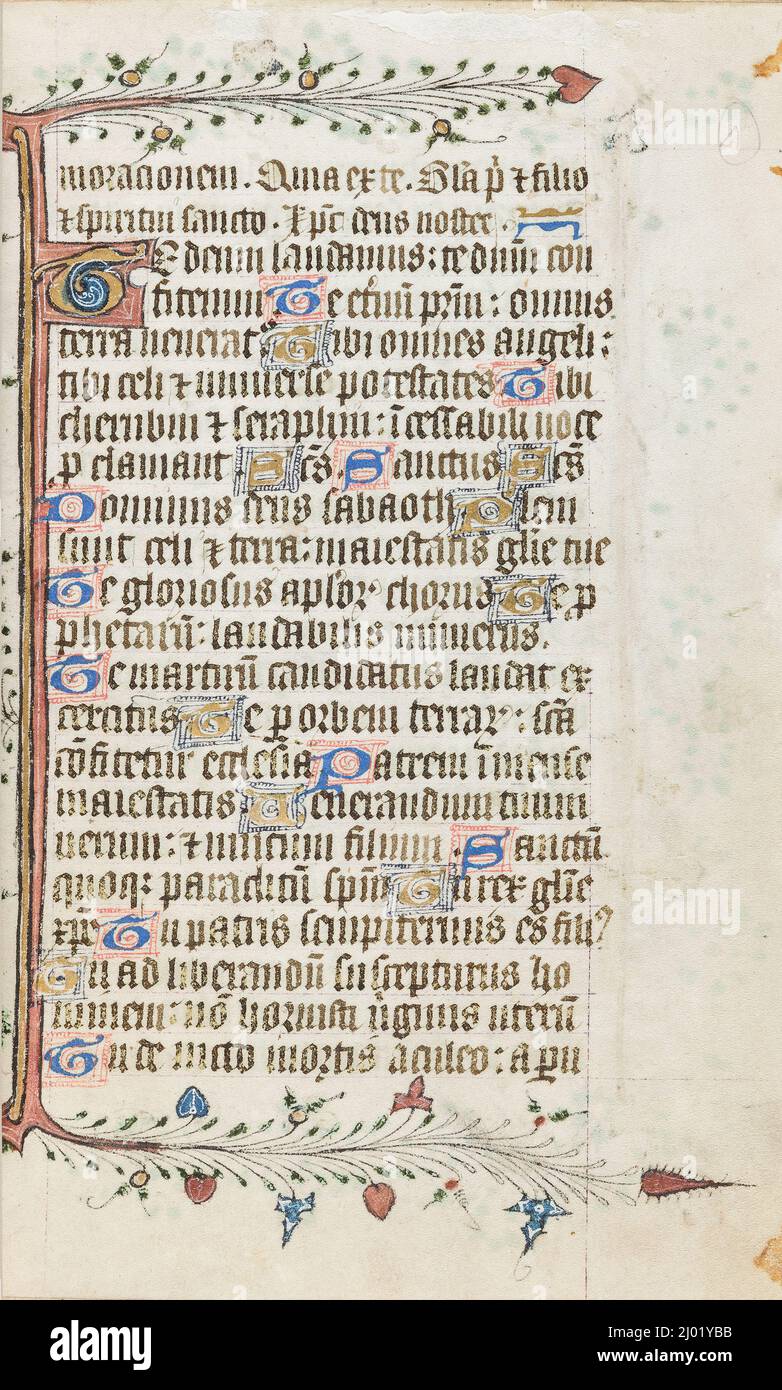 moracionem. Quia ex te. Gl'ia p̄ri ⁊ filio
⁊ spiritui sancto. Xp̄c deus noster.
Te deum laudamus: te dnm̄ con
fitemur Te et'nū prēm: omnis
terra venerat̄ Tibi omnes angeli:
tibi celi ⁊ universe potestates Tibi
cherubin ⁊ seraphin: īcessabili uoce
p clamant Sc̄s Sanctus Sc̄s
Dominus deus sabaoth Pleni
sunt celi ⁊ terra: maiestatis glīe tue
Te gloriosus aplor' chorus Te p
phetarū: laudabilis numerus.
Te martirū candidatus laudat ex
ercitus Te p orbem terrar': sc̄a
cōfitetur ecclesia Patrem īmense
maiestatis Venerandum tuum
uerum: ⁊ unicum filium Sanctū
quoq: paraclitū spm̄ Tu rex glīe
xp̄e Tu patris sempiternus es fili9
Tu ad liberandū suscepturus ho
minem: nō horruisti uiginis uterū
Tu de uicto mortis aculeo: a pu
alamy
alamy
alamy
Image ID: 2J01YBB
www.alamy.com